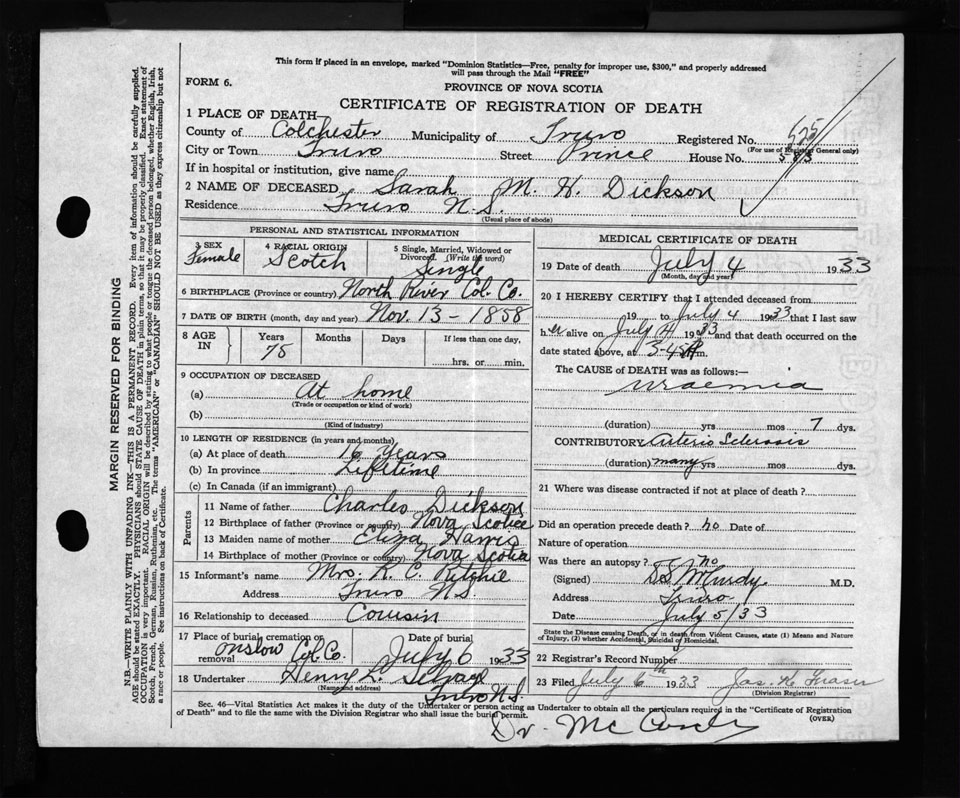 This form if placed in an envelope, marked "Dominion Statistics—Free, penalty for improper use, $300," and properly addressed
will pass through the Mail "FREE"
FORM 6.
PROVINCE OF NOVA SCOTIA
CERTIFICATE OF REGISTRATION OF DEATH
1 PLACE OF DEATH—
County of Colchester Municipality of Truro Registered No. 525
(For use of Registrar General only)
City or Town Truro Street Prince House No. 583
If in hospital or institution, give name
2 NAME OF DECEASED Sarah M. H. Dickson
Residence Truro N.S.
(Usual place of abode)
PERSONAL AND STATISTICAL INFORMATION
3 SEX Female
4 RACIAL ORIGIN Scotch
5 Single, Married, Widowed or Divorced. (Write the word) Single
6 BIRTHPLACE (Province or country) North River Col. Co.
7 DATE OF BIRTH (month, day and year) Nov. 13 – 1858
8 AGE IN Years 75 Months Days If less than one day, hrs. or min.
9 OCCUPATION OF DECEASED
(a) At home
(Trade or occupation or kind of work)
(b)
(Kind of industry)
10 LENGTH OF RESIDENCE (in years and months)
(a) At place of death 16 Years
(b) In province Lifetime
(c) In Canada (if an immigrant)
Parents
11 Name of father Charles Dickson
12 Birthplace of father (Province or country) Nova Scotia
13 Maiden name of mother Eliza Harris
14 Birthplace of mother (Province or country) Nova Scotia
15 Informant's name Mrs. R. C. Ritchie
Address Truro N.S.
16 Relationship to deceased Cousin
17 Place of burial, cremation or removal Onslow Col. Co. Date of burial July 6 1933
18 Undertaker Henry L.
(Name and address) Truro N.S.
MEDICAL CERTIFICATE OF DEATH
19 Date of death July 4 1933
(Month, day and year)
20 I HEREBY CERTIFY that I attended deceased from
19 to July 4 1933 that I last saw
her alive on July 4 1933 and that death occurred on the
date stated above, at 3-45 m.
The CAUSE of DEATH was as follows:—
Uraemia
(duration) yrs mos 7 dys.
CONTRIBUTORY Arterio Sclerosis
(duration) many yrs mos dys.
21 Where was disease contracted if not at place of death?
Did an operation precede death? no Date of
Nature of operation
Was there an autopsy? no
(Signed) McCurdy M.D.
Address Truro
Date July 5/33
State the Disease causing Death, or in death from Violent Causes, state (1) Means and Nature
of Injury, (2) whether Accidental, Suicidal or Homicidal.
22 Registrar's Record Number
23 Filed July 6th 1933 Jas. H. Fraser
(Division Registrar)
Sec. 46—Vital Statistics Act makes it the duty of the Undertaker or person acting as Undertaker to obtain all the particulars required in the "Certificate of Registration
of Death" and to file the same with the Division Registrar who shall issue the burial permit.
(OVER)
Dr. Mc
MARGIN RESERVED FOR BINDING
N.B.—WRITE PLAINLY WITH UNFADING INK—THIS IS A PERMANENT RECORD. Every item of information should be carefully supplied.
AGE should be stated EXACTLY. PHYSICIANS should STATE CAUSE OF DEATH in plain terms, so that it may be properly classified. Exact statement of
OCCUPATION is very important. RACIAL ORIGIN will be described by stating to what people or tongue the deceased person belonged, whether English, Irish,
Scotch, French, German, Russian, Ruthenian, etc. The terms "AMERICAN" or "CANADIAN" SHOULD NOT BE USED as they express citizenship but not
a race or people. See instructions on back of Certificate.